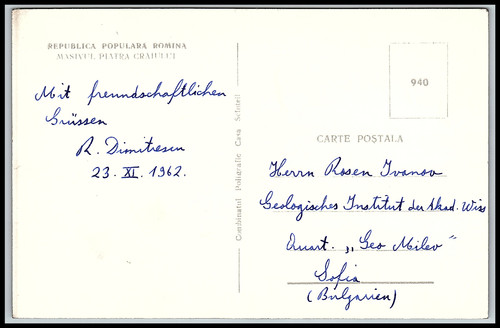 REPUBLICA POPULARĂ ROMÎNĂ
MASIVUL PIATRA CRAIULUI
Mit freundschaftlichen
Grüssen
R. Dimitrescu
23. XI. 1962.
Combinatul Poligrafic Casa Scînteii
940
CARTE POȘTALĂ
Herrn Rosen Ivanov
Geologisches Institut der Akad. Wiss
Quart. „Geo Milev"
Sofia
(Bulgarien)